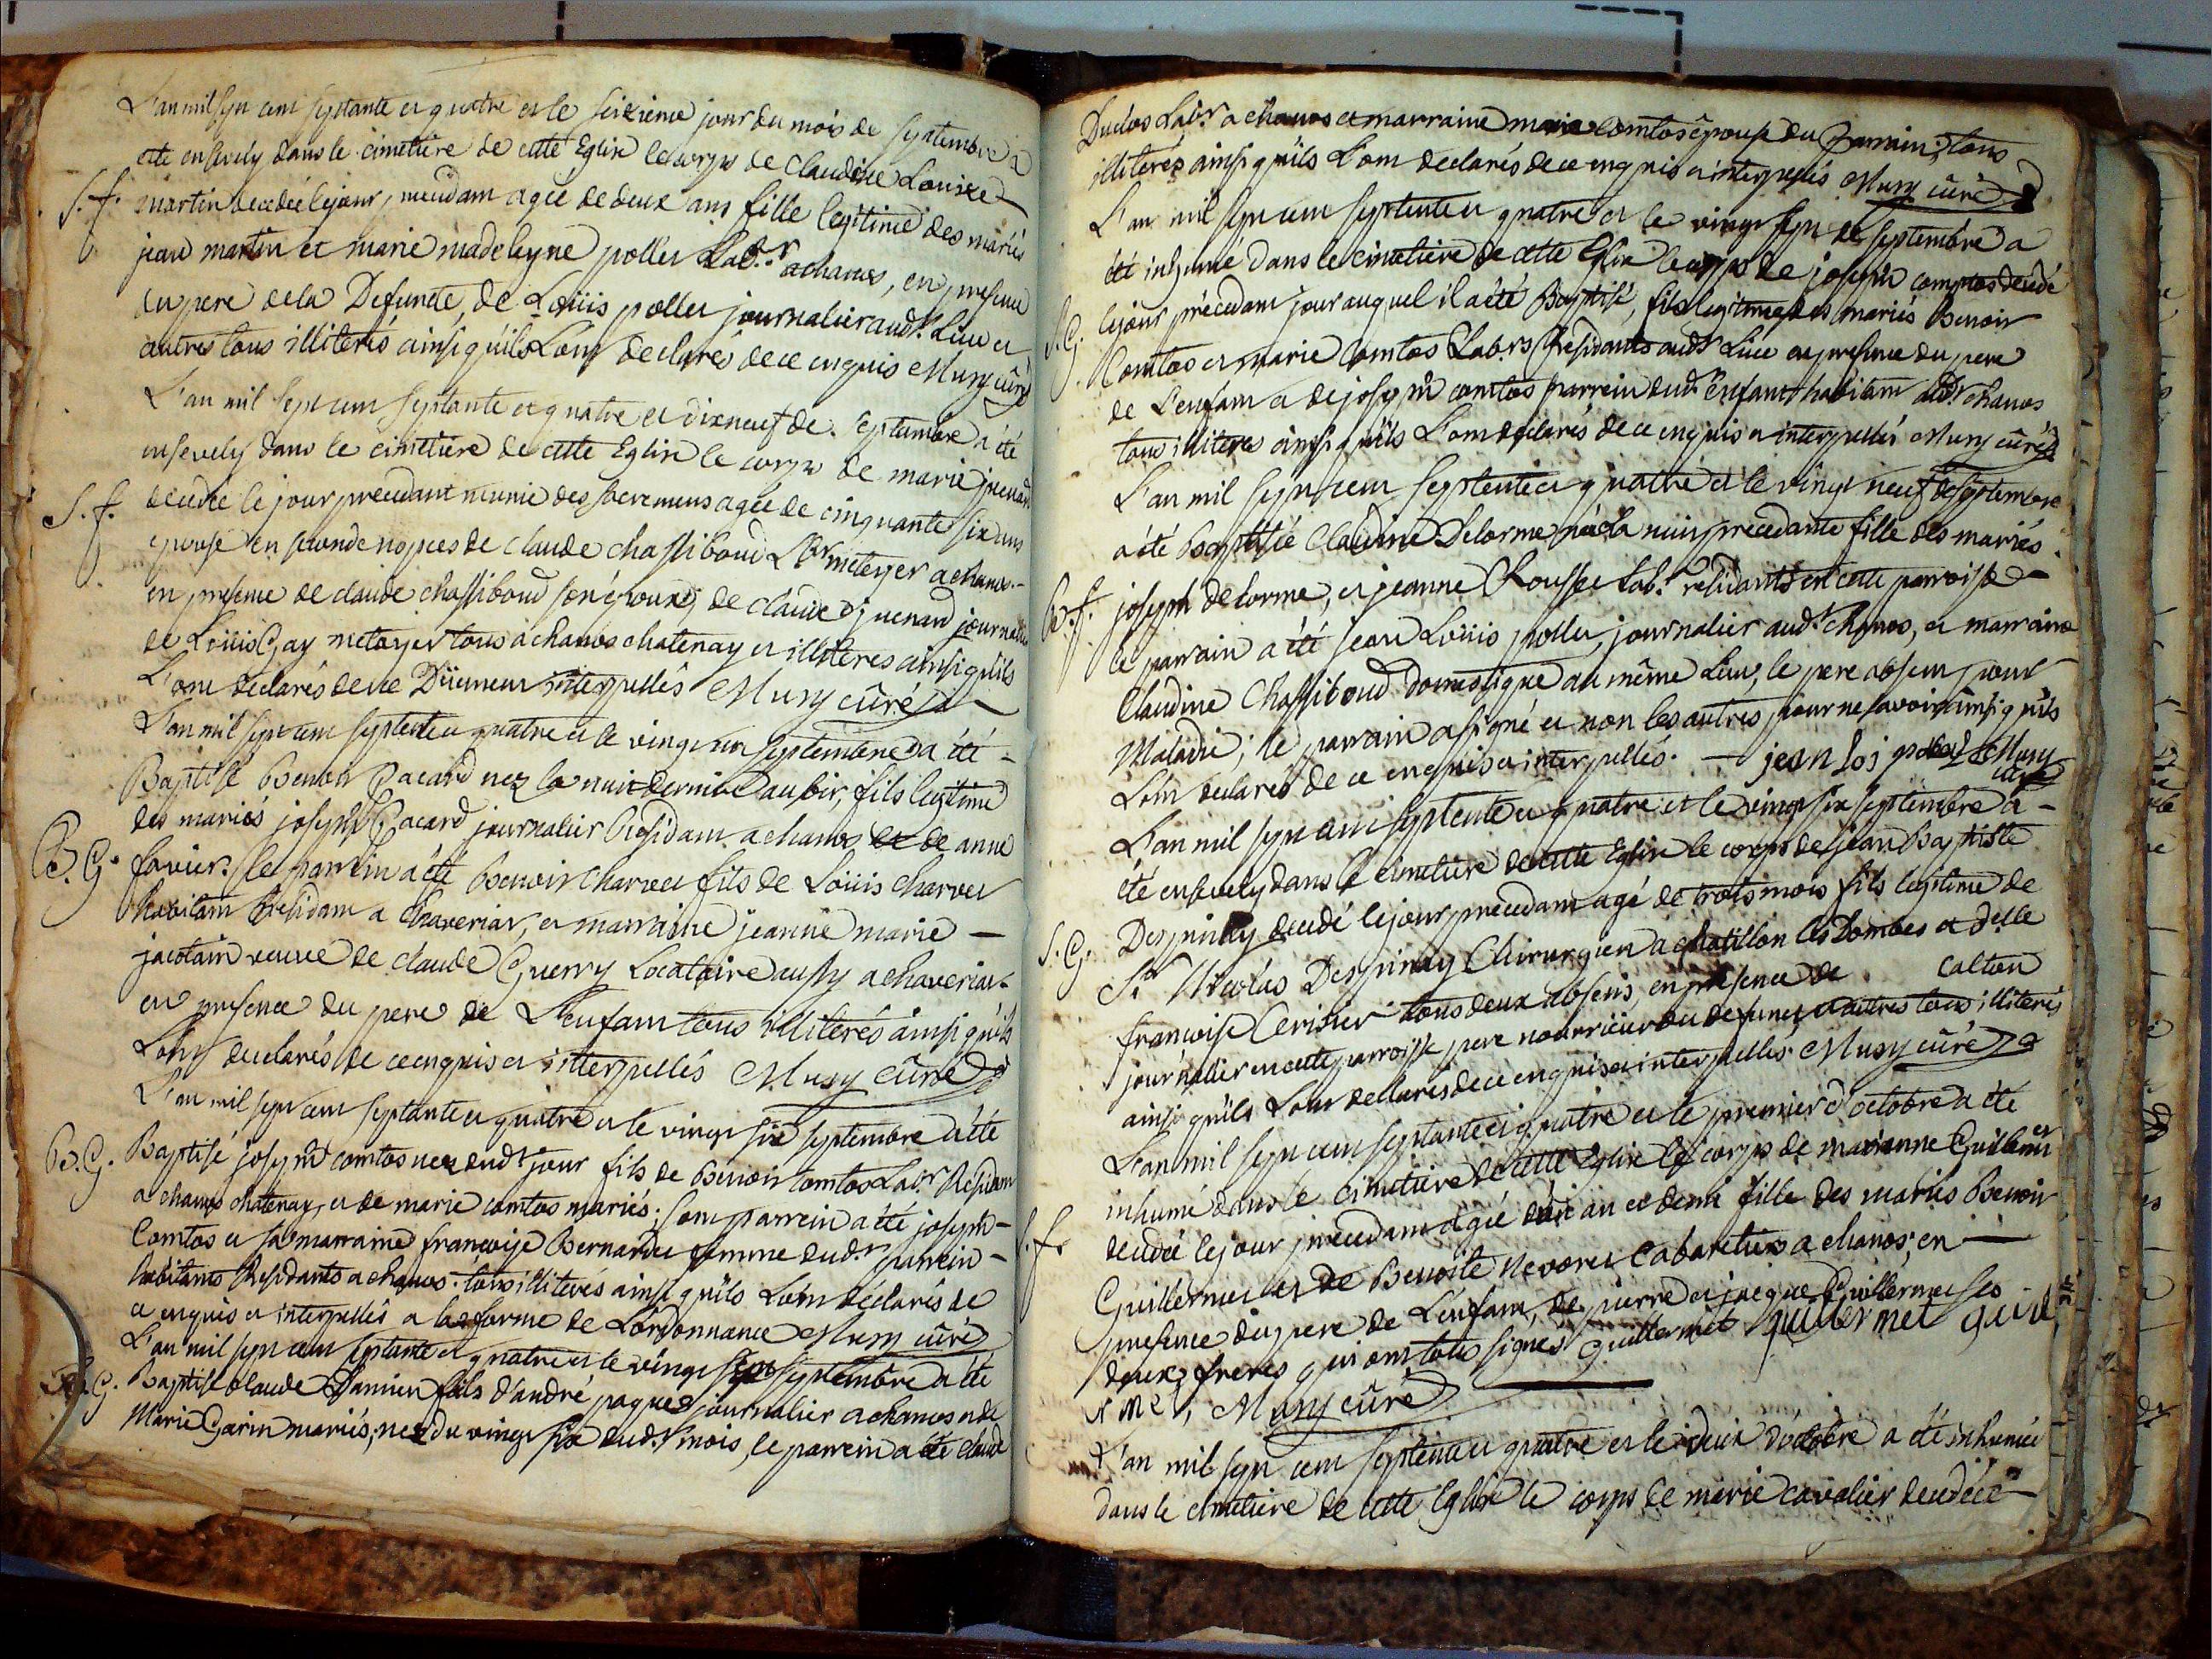 L'an mil sept cent septante et quatre et le seizieme jour du mois de septembre a
eté ensevely dans le cimetiere de cette Eglise le corps de Claudine Louise
S. f. martin decedeé le jour precedam agée de deux ans fille legitime des mariés
jean martin et marie madeleyne pollet Lab.r a chanos, en presence
du pere de la Defuncte, de Loüis pollet journalier aud.t Lieu et
autres tous illiterés ainsi quils L'ont declarés de ce enquis Musy curé
L'an mil sept cent septante et quatre et dixneuf de septembre a été
ensevely dans le cimetiere de cette Eglise le corps de marie juenard
S. f. decedée le jour precedant munie des sacremens agée de cinquante six ans
epouse en seconde nopces de claude chassiboud Lbr meteyer a chanos
en presence de claude chassiboud son époux, de claude juenard journalier
de Loüis Gay metayer tous a chanos chatenay et illiteres ainsi quils
L'ont declarés de ce Düement interpellés Musy curé
L'an mil sept cent septente et quatre et le vingt un septembre a été
Baptisé Benoit Pacard nez la nuit derniere au soir, fils legitime
des mariés joseph Pacard journalier Residant a chanos et de anne
B. G. favier. le parrein a été Benoit charvet fils de Loüis charvet
habitant Residam a Chaveriat, et marraine jeanne marie
jacotain veuve de claude Guerry Locataire aussy a chaveriat
en presence du pere de L'enfant tous illiterés ainsi quils
L'ont declarés de ce enquis et interpellés Musy curé
L'an mil sept cent septante et quatre et le vingt six septembre a été
B. G. Baptisé joseph comtos nez dud.t jour fils de Benoit comtos Lab.r Residant
a chanos chatenay, et de marie comtos mariés; som parrein a été joseph
Comtos et sa marraine francoise Bernardet femme dud.t parrein
habitants Residants a chanos. tous illiterés ainsi quils L'ont declarés de
ce enquis et interpellés a la forme de L'ordonnance Musy curé
L'an mil sept cent septante et quatre et le vingt sept septembre a été
B. G. Baptisé claude Damien fils d'andré paques journalier a chanos et de
Marie Garin mariés, nez du vingt six dud.t mois, le parrein a été claude
Duclos Lab.r a chanos et marraine marie comtos épouse du parrain; tous
illiterés ainsi quils L'ont declarés de ce enquis et interpellés Musy curé
L'an mil sept cent septente et quatre et le vingt sept de septembre a
été inhumé dans le cimetiere de cette Eglise le corps de joseph comptos decedé
S. G. le jour précedant jour auquel il a été Baptisé, fils legitime des mariés Benoit
Comtos et marie Comtos Lab.rs Residants aud.t Lieu en presence du pere
de L'enfant et de joseph comtos parrein dud.t enfant habitam aud.t chanos
tous illiteres ainsi quils L'ont declarés de ce enquis et interpellés Musy curé
L'an mil sept cent septente et quatre et le vingt neuf de septembre
a été Baptisée Claudine Delorme née la nuit precedante fille des mariés
B. f. joseph delorme, et jeanne Rousset lab.r residants en cette parroisse
le parrain a été jean Loüis pollet, journalier aud.t chanos, et marraine
Claudine Chassiboud domestique au même Lieu, le pere absent pour
Maladie; le parrain a signé et non les autres pour ne savoir ainsi quils
L'ont declarés de ce enquis et interpellés. jean Loj pollet Musy
curé
L'an mil sept cent septente et quatre et le vingt six septembre a
été ensevely dans le cimetiere de cette Eglise le corps de jean Baptiste
S. G. Despinay decedé le jour precedant agé de trois mois fils legitime de
Sr Nicolas Despinay Chirurgien a chatillon les Dombes et d.elle
francoise Cerisier tous deux absens, en présence de calton
journalier en cette parroisse pere nourricier du defunct et autres tous illiterés
ainsi quils L'ont declarés de ce enquis et interpellés. Musy curé
L'an mil sept cent septante et quatre et le premier d'octobre a été
inhumé dans le cimetiere de cette Eglise le corps de marianne Guillermet
S. f. decedée le jour precedant agée d'un an et demi fille des mariés Benoit
Guillermet et de Benoite Nevoret Cabaretier a chanos, en
presence du pere de L'enfant, de pierre et jacque Guillermet ses
deux freres qui ont tous signés Guillermet guillermet guil
r met, Musy curé
L'an mil sept cent septente et quatre et le deux d'octobre a été inhumée
dans le cimetiere de cette Eglise le corps de marie cavalier decedeé